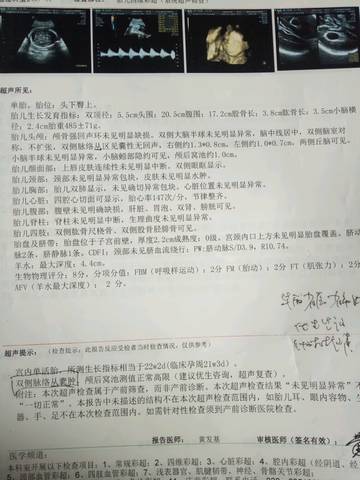 超声所见:
单胎, 胎位: 头下臀上。
胎儿生长发育指标: 双顶径: 5.5cm头围: 20.5cm腹围: 17.2cm股骨长: 3.8cm肱骨长: 3.5cm小脑横
径: 2.4cm胎重485±71g。
胎儿头颅: 颅骨强回声环未见明显缺损。双侧大脑半球未见明显异常, 脑中线居中, 双侧脑室对
称、不扩张, 双侧脉络丛区见囊性无回声, 右侧约1.3*0.8cm、左侧约1.0*0.7cm。两侧丘脑可见。
小脑半球未见明显异常, 小脑蚓部隐约可见。颅后窝池约1.0cm。
胎儿颜面部: 上唇皮肤连续性未见明显中断, 双侧眼眶显示。
胎儿颈部: 颈部未见明显异常包块, 皮肤未见明显水肿。
胎儿胸部: 胎儿双肺显示, 未见确切异常包块。心脏位置未见明显异常。
胎儿心脏: 四腔心切面可显示, 胎心率147次/分, 节律整齐。
胎儿腹部: 腹壁未见明确缺损, 肝脏、胃泡、双肾、膀胱可见。
胎儿脊柱: 脊柱未见明显中断, 生理曲度未见明显异常。
胎儿四肢: 双侧肱骨尺桡骨、双侧股骨胫腓骨可见。
胎盘及脐带: 胎盘位于子宫前壁, 厚度2.2cm成熟度: 0级, 宫颈内口上方未见明显胎盘覆盖。脐动
脉2条、脐静脉1条, CDFI: 颈部未见脐血流绕行; PW:脐动脉S/D3.9, R10.74。
羊水: 最大深度: 4.4cm。
生物物理评分: 8分, 分项分值: FBM(呼吸样运动): 2分 FM(胎动): 2分 FT(肌张力): 2分
AFV(羊水最大深度): 2 分。
超声提示: (检查提示: 此报告反应受检者当时检查情况, 仅供参考)
宫内单活胎, 所测生长指标相当于22w2d(临床孕周21w3d)。
双侧脉络丛囊肿 颅后窝池测值正常高限(建议优生咨询、超声复查)。
附注: 本次超声检查属于产前筛查, 而非产前诊断。本次超声检查结果“未见明显异常”不
“一切正常”。本报告中未描述的结构不在本超声检查范围内, 如胎儿耳、眼内容物、
器、手、足不在本次检查范围内。如需针对性检查须到产前诊断医院检查。
报告医师: 黄发基 审核医师(签名有效):
医学频道:
本科室开展以下检查项目: 1、常规彩超; 2、四维彩超; 3、心脏彩超; 4、腔内彩超(经阴道、经